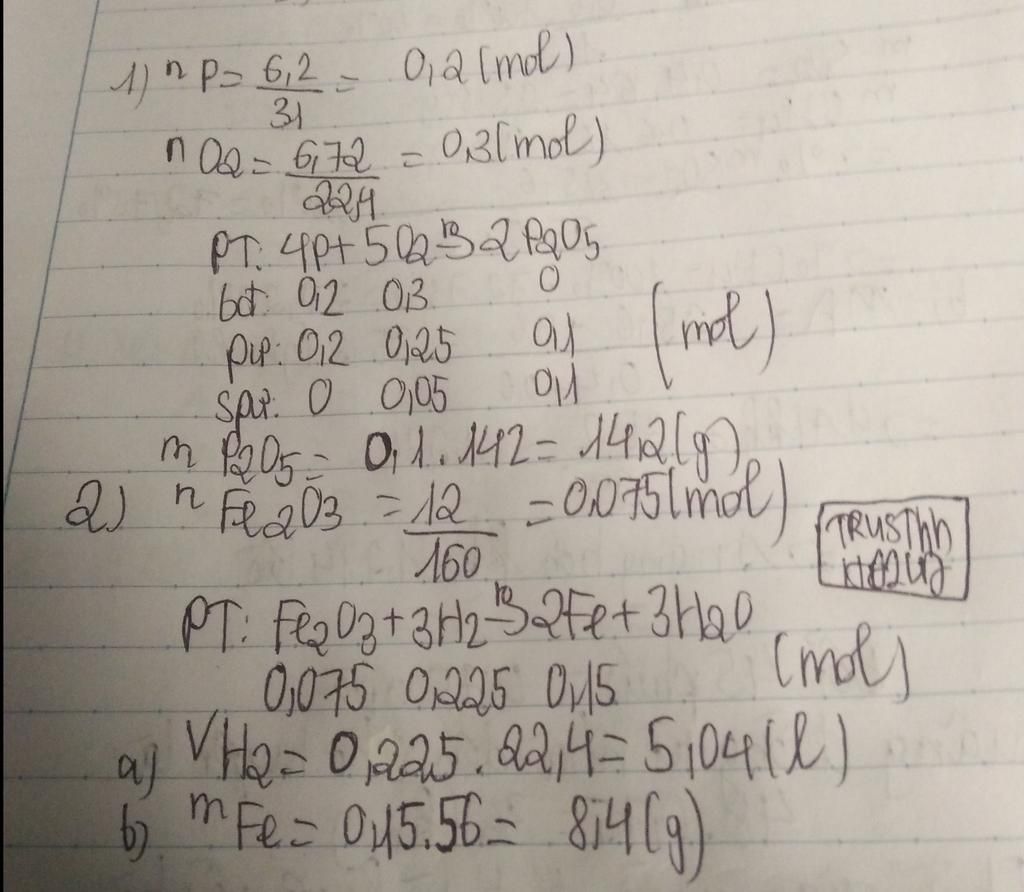 1) nP = 6,2/31 = 0,2 (mol)
nO2 = 6,72/22,4 = 0,3 (mol)
PT: 4P + 5O2 → 2P2O5
bđ: 0,2 0,3 0
pư: 0,2 0,25 0,1 (mol)
spư: 0 0,05 0,1
mP2O5 = 0,1.142 = 14,2 (g)
2) nFe2O3 = 12/160 = 0,075 (mol)
PT: Fe2O3 + 3H2 → 2Fe + 3H2O
0,075 0,225 0,15 (mol)
a) VH2 = 0,225.22,4 = 5,04 (l)
b) mFe = 0,15.56 = 8,4 (g)